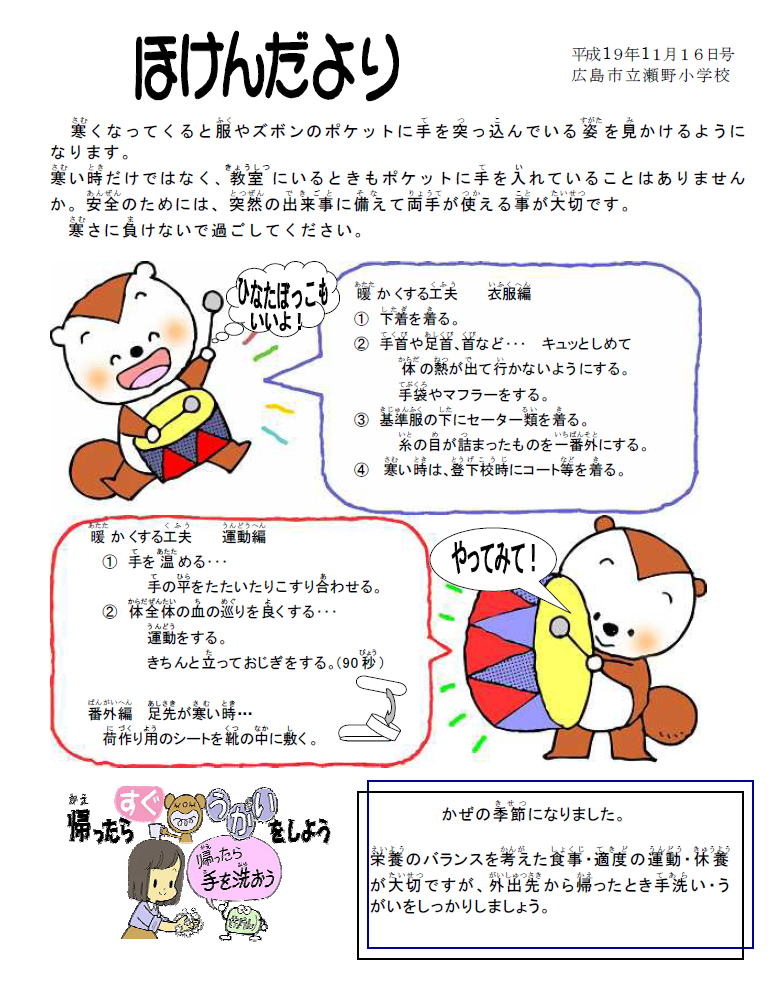 ほけんだより
平成19年11月16日号
広島市立瀬野小学校
寒くなってくると服やズボンのポケットに手を突っ込んでいる姿を見かけるように
なります。
寒い時だけではなく、教室にいるときもポケットに手を入れていることはありません
か。安全のためには、突然の出来事に備えて両手が使える事が大切です。
寒さに負けないで過ごしてください。
ひなたぼっこも
いいよ！
暖かくする工夫　衣服編
① 下着を着る。
② 手首や足首、首など・・・　キュッとしめて
体の熱が出て行かないようにする。
手袋やマフラーをする。
③ 基準服の下にセーター類を着る。
糸の目が詰まったものを一番外にする。
④ 寒い時は、登下校時にコート等を着る。
暖かくする工夫　運動編
① 手を温める・・・
手の平をたたいたりこすり合わせる。
② 体全体の血の巡りを良くする・・・
運動をする。
きちんと立っておじぎをする。（90秒）
番外編　足先が寒い時・・・
荷作り用のシートを靴の中に敷く。
やってみて！
帰ったらすぐうがいをしよう
帰ったら
手を洗おう
かぜの季節になりました。
栄養のバランスを考えた食事・適度の運動・休養
が大切ですが、外出先から帰ったとき手洗い・う
がいをしっかりしましょう。